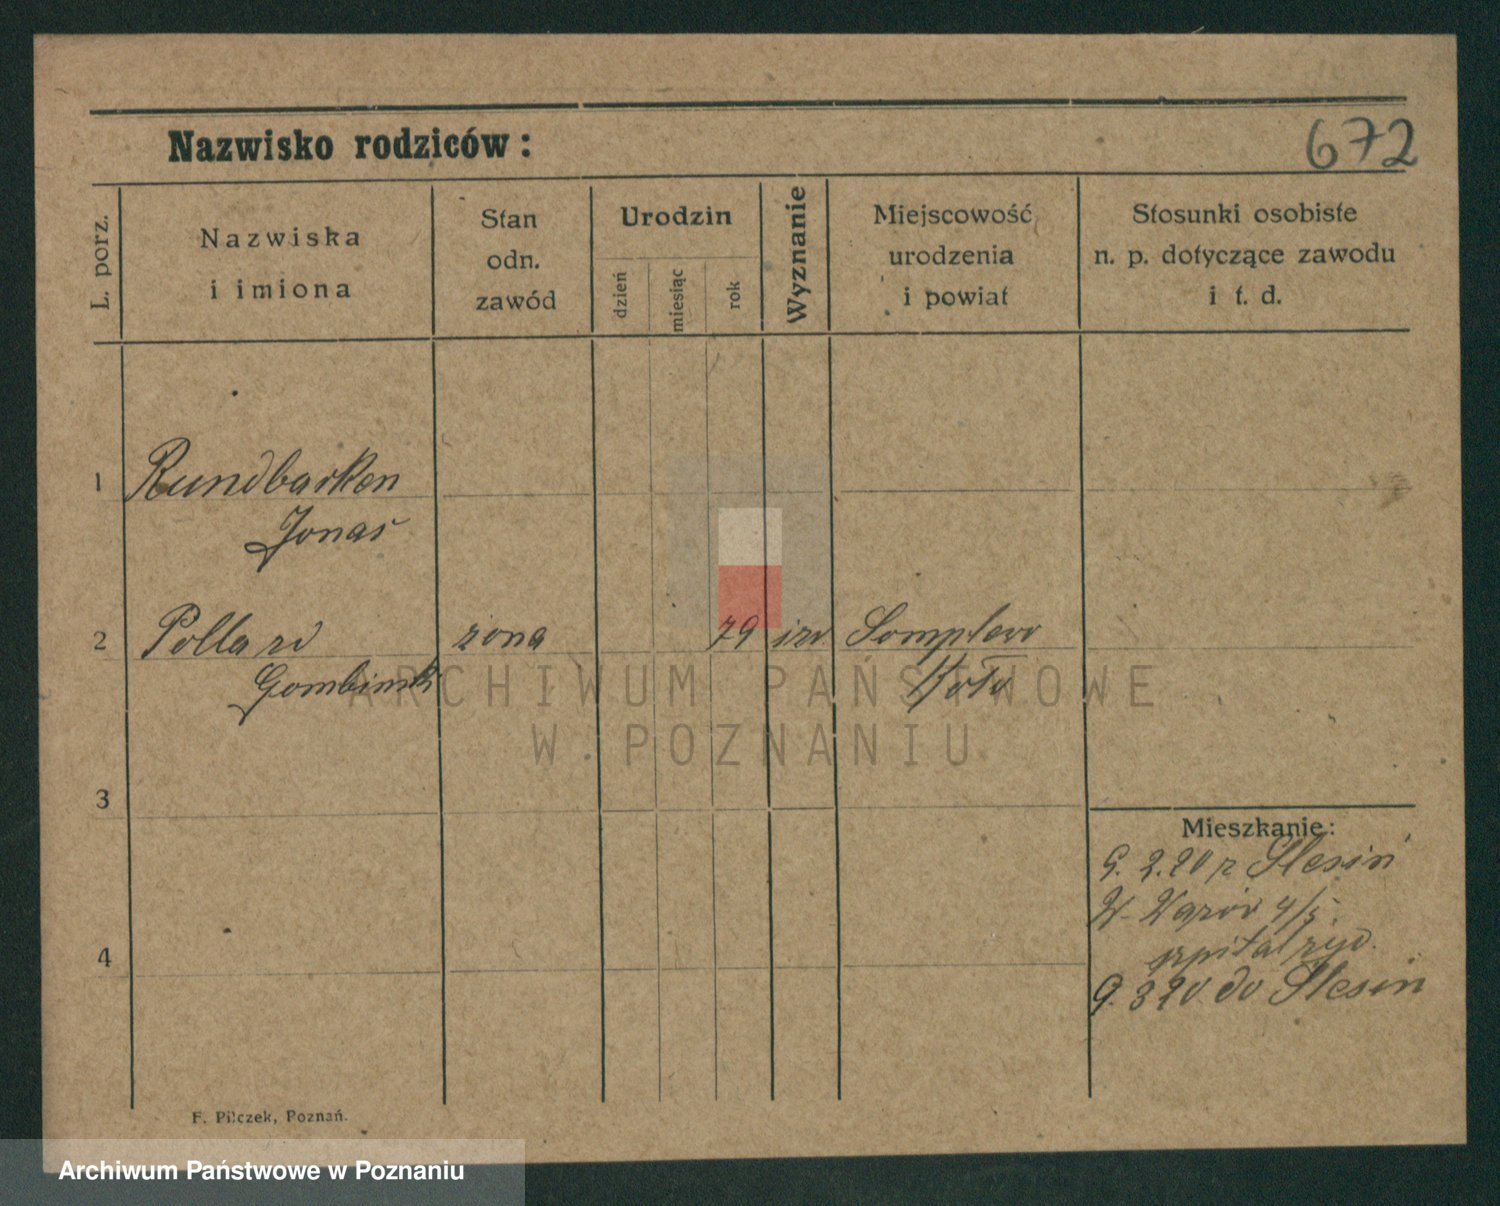 672
Nazwisko rodziców:
L. porz.
Nazwiska
i imiona
Stan
odn.
zawód
Urodzin
dzień
miesiąc
rok
Wyznanie
Miejscowość
urodzenia
i powiat
Stosunki osobiste
n. p. dotyczące zawodu
i t. d.
1
Rundbarken
Jonas
2
zona
79
izr.
Kolo
3
4
Mieszkanie:
9. 2. 20 z Slesin
W. 4/5
szpital żyd.
9. 3 20 do Slesin
F. Pilczek, Poznań.
ARCHIWUM PAŃSTWOWE
W POZNANIU
Archiwum Państwowe w Poznaniu